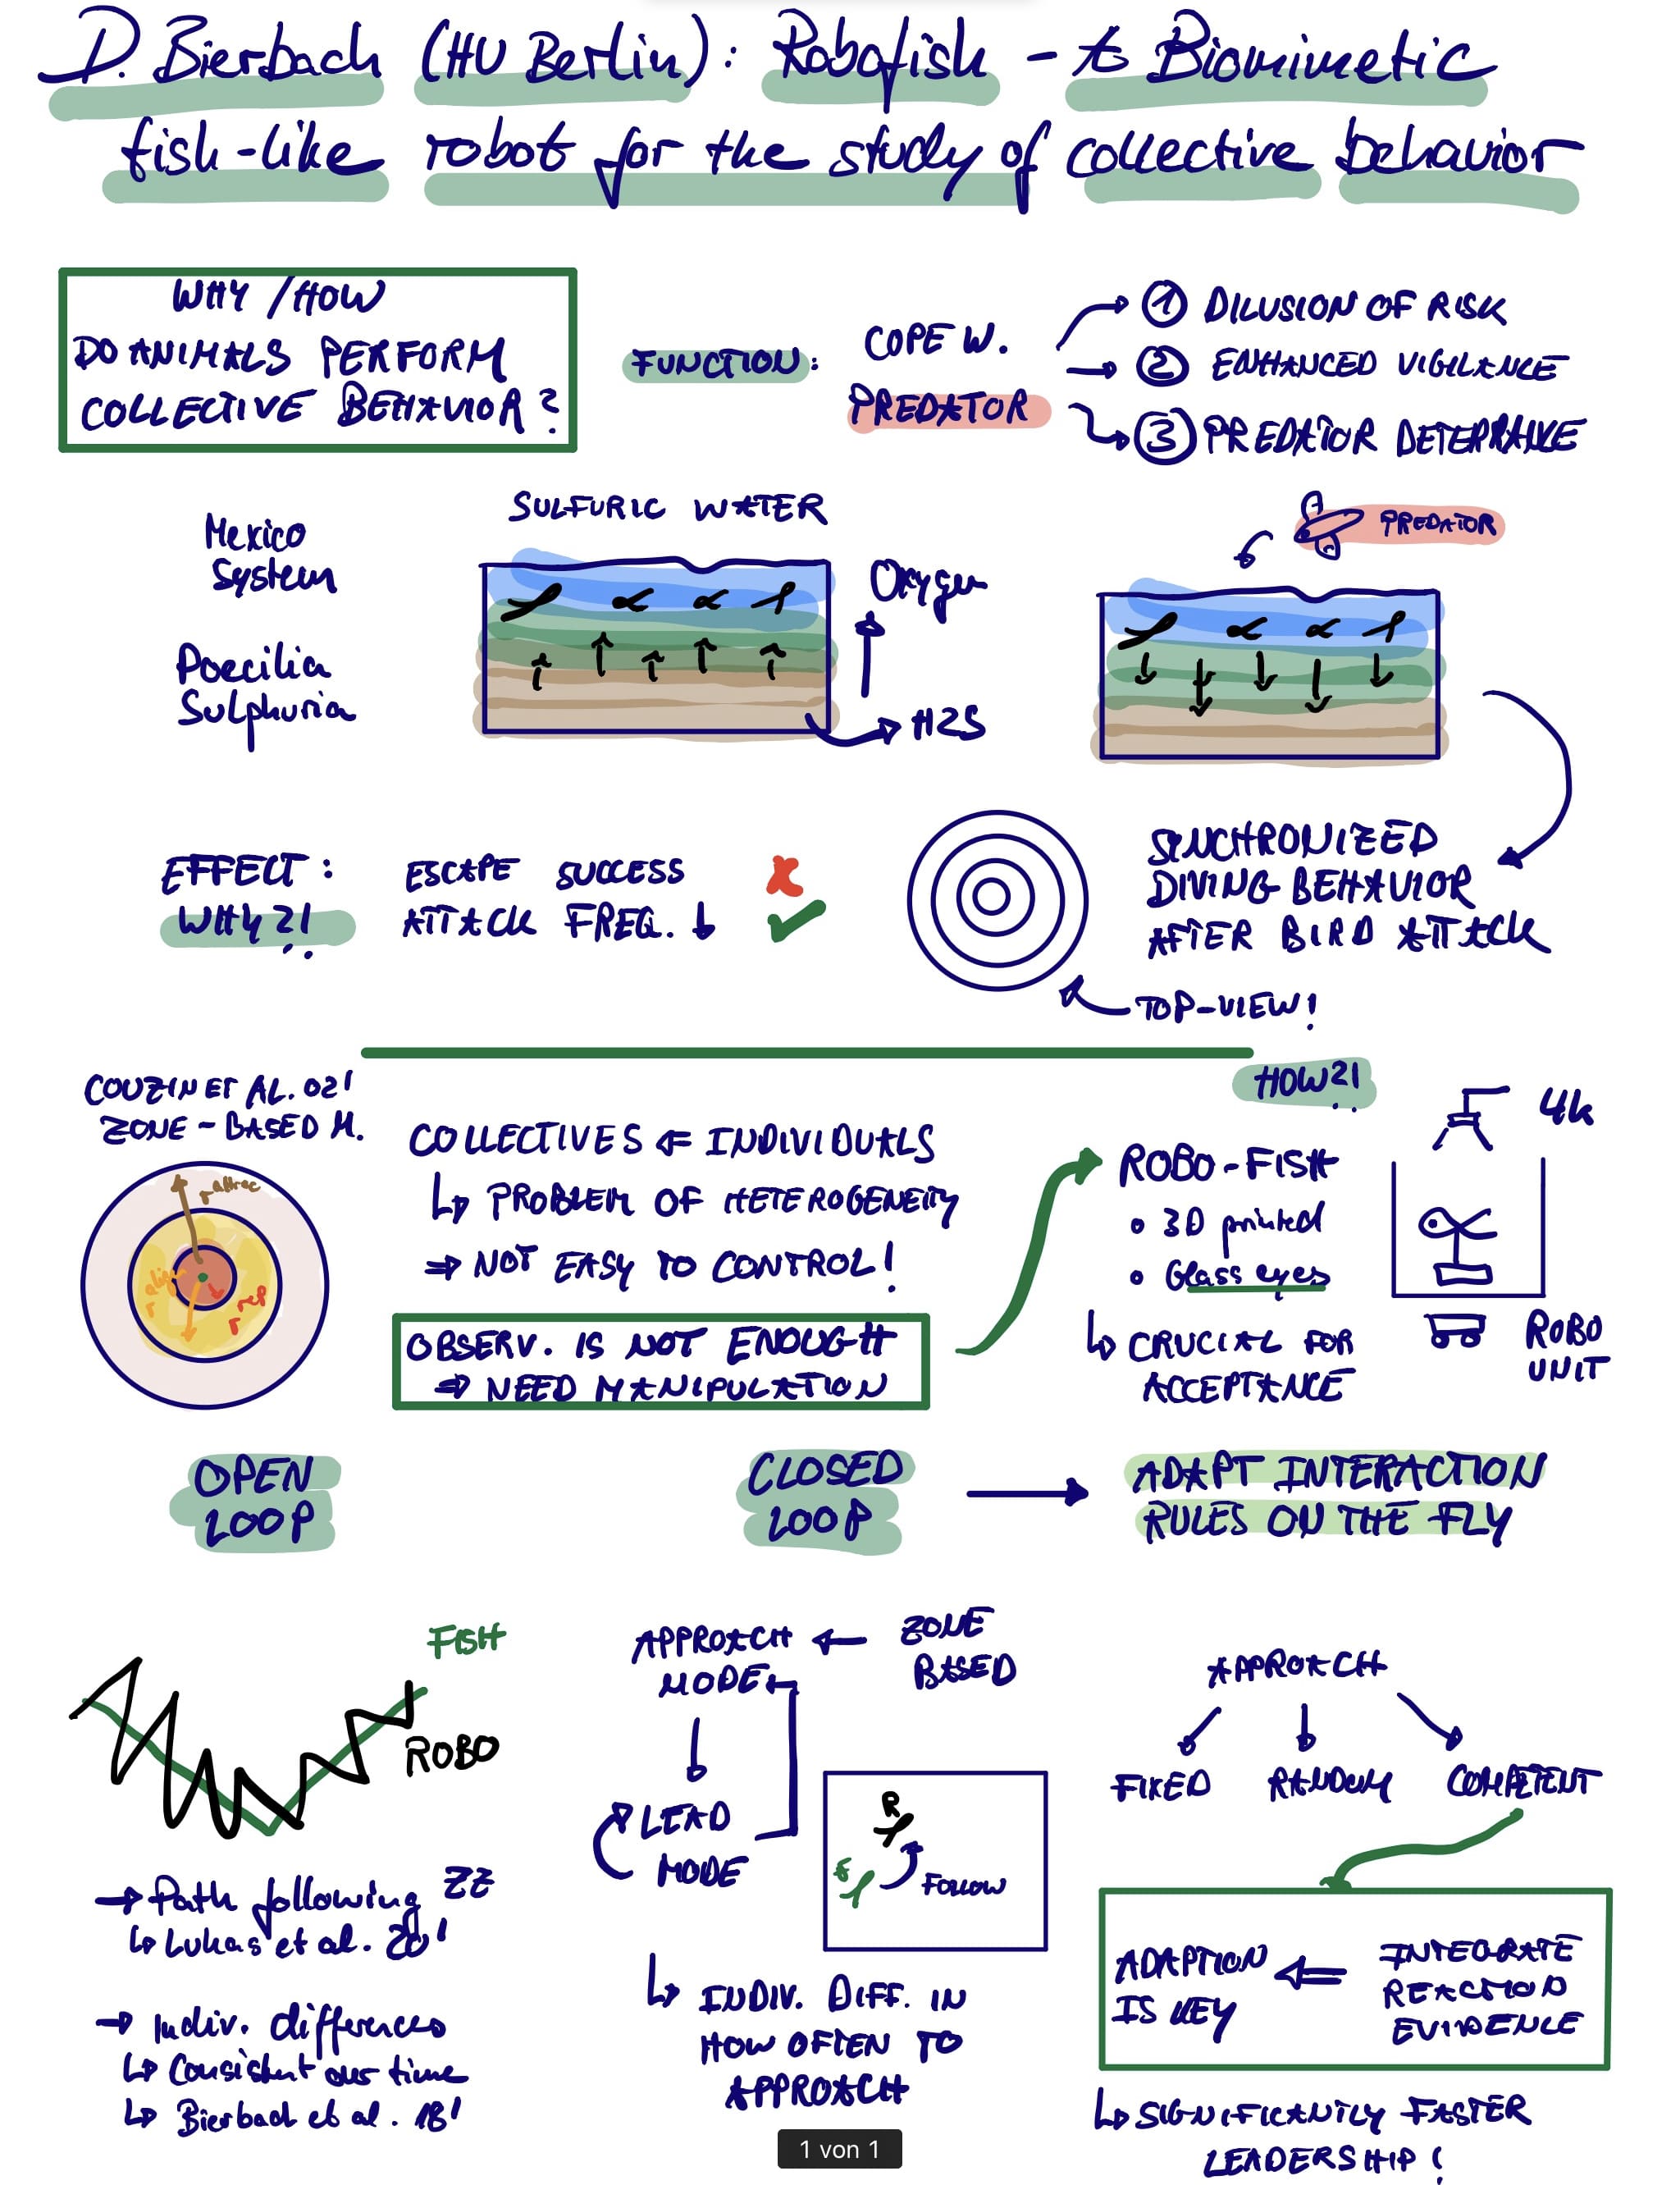 D. Bierbach (HU Berlin): Robofish - to Biomimetic
fish-like robot for the study of collective Behavior
WHY / HOW
DO ANIMALS PERFORM
COLLECTIVE BEHAVIOR?
FUNCTION:
COPE W.
PREDATOR
① DILUSION OF RISK
② ENHANCED VIGILANCE
③ PREDATOR DETERRANCE
Mexico
System
Poecilia
Sulphuria
SULFURIC WATER
Oxygen
H2S
PREDATOR
EFFECT:
WHY?!
ESCAPE SUCCESS
ATTACK FREQ. ↓
SINCHRONIZED
DIVING BEHAVIOR
AFTER BIRD ATTACK
TOP-VIEW!
COUZIN ET AL. 02'
ZONE-BASED M.
r attrac
r align
r rep
COLLECTIVES ⇐ INDIVIDUALS
↳ PROBLEM OF HETEROGENEITY
⇒ NOT EASY TO CONTROL!
OBSERV. IS NOT ENOUGH
⇒ NEED MANIPULATION
HOW?!
ROBO-FISH
• 3D printed
• Glass eyes
↳ CRUCIAL FOR
ACCEPTANCE
4k
ROBO
UNIT
OPEN
LOOP
CLOSED
LOOP
→ ADAPT INTERACTION
RULES ON THE FLY
FISH
ROBO
→ Path following ZZ
↳ Lukas et al. 20'
→ Indiv. differences
↳ Consistent over time
↳ Bierbach et al. 18'
APPROACH
MODE
← ZONE
BASED
LEAD
MODE
R
F
FOLLOW
↳ INDIV. DIFF. IN
HOW OFTEN TO
APPROACH
APPROACH
FIXED RANDOM COMPETENT
ADAPTION
IS KEY
⇐ INTEGRATE
REACTION
EVIDENCE
↳ SIGNIFICANTLY FASTER
LEADERSHIP!
1 von 1